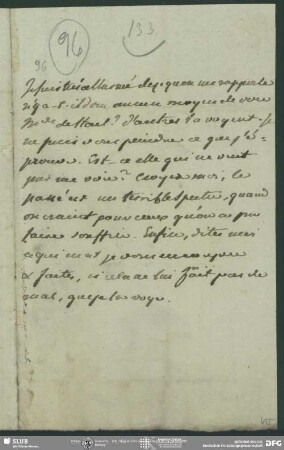 96
133
96
Je suis très allarmé de ce qu'on me rapporte
n'y a-t-il donc aucun moyen de voir
Mde de Staël? d'autres la voyent. Je
ne puis vous peindre ce que j'é-
prouve. Est ce elle qui ne veut
pas me voir? Croyez moi, le
passé est un terrible spectre, quand
on craint pour ceux qu'on a pu
faire souffrir. Enfin, dites moi
je vous en conjure
& faites, si cela ne lui fait pas de
mal, que je la voye.
SLUB
DFG